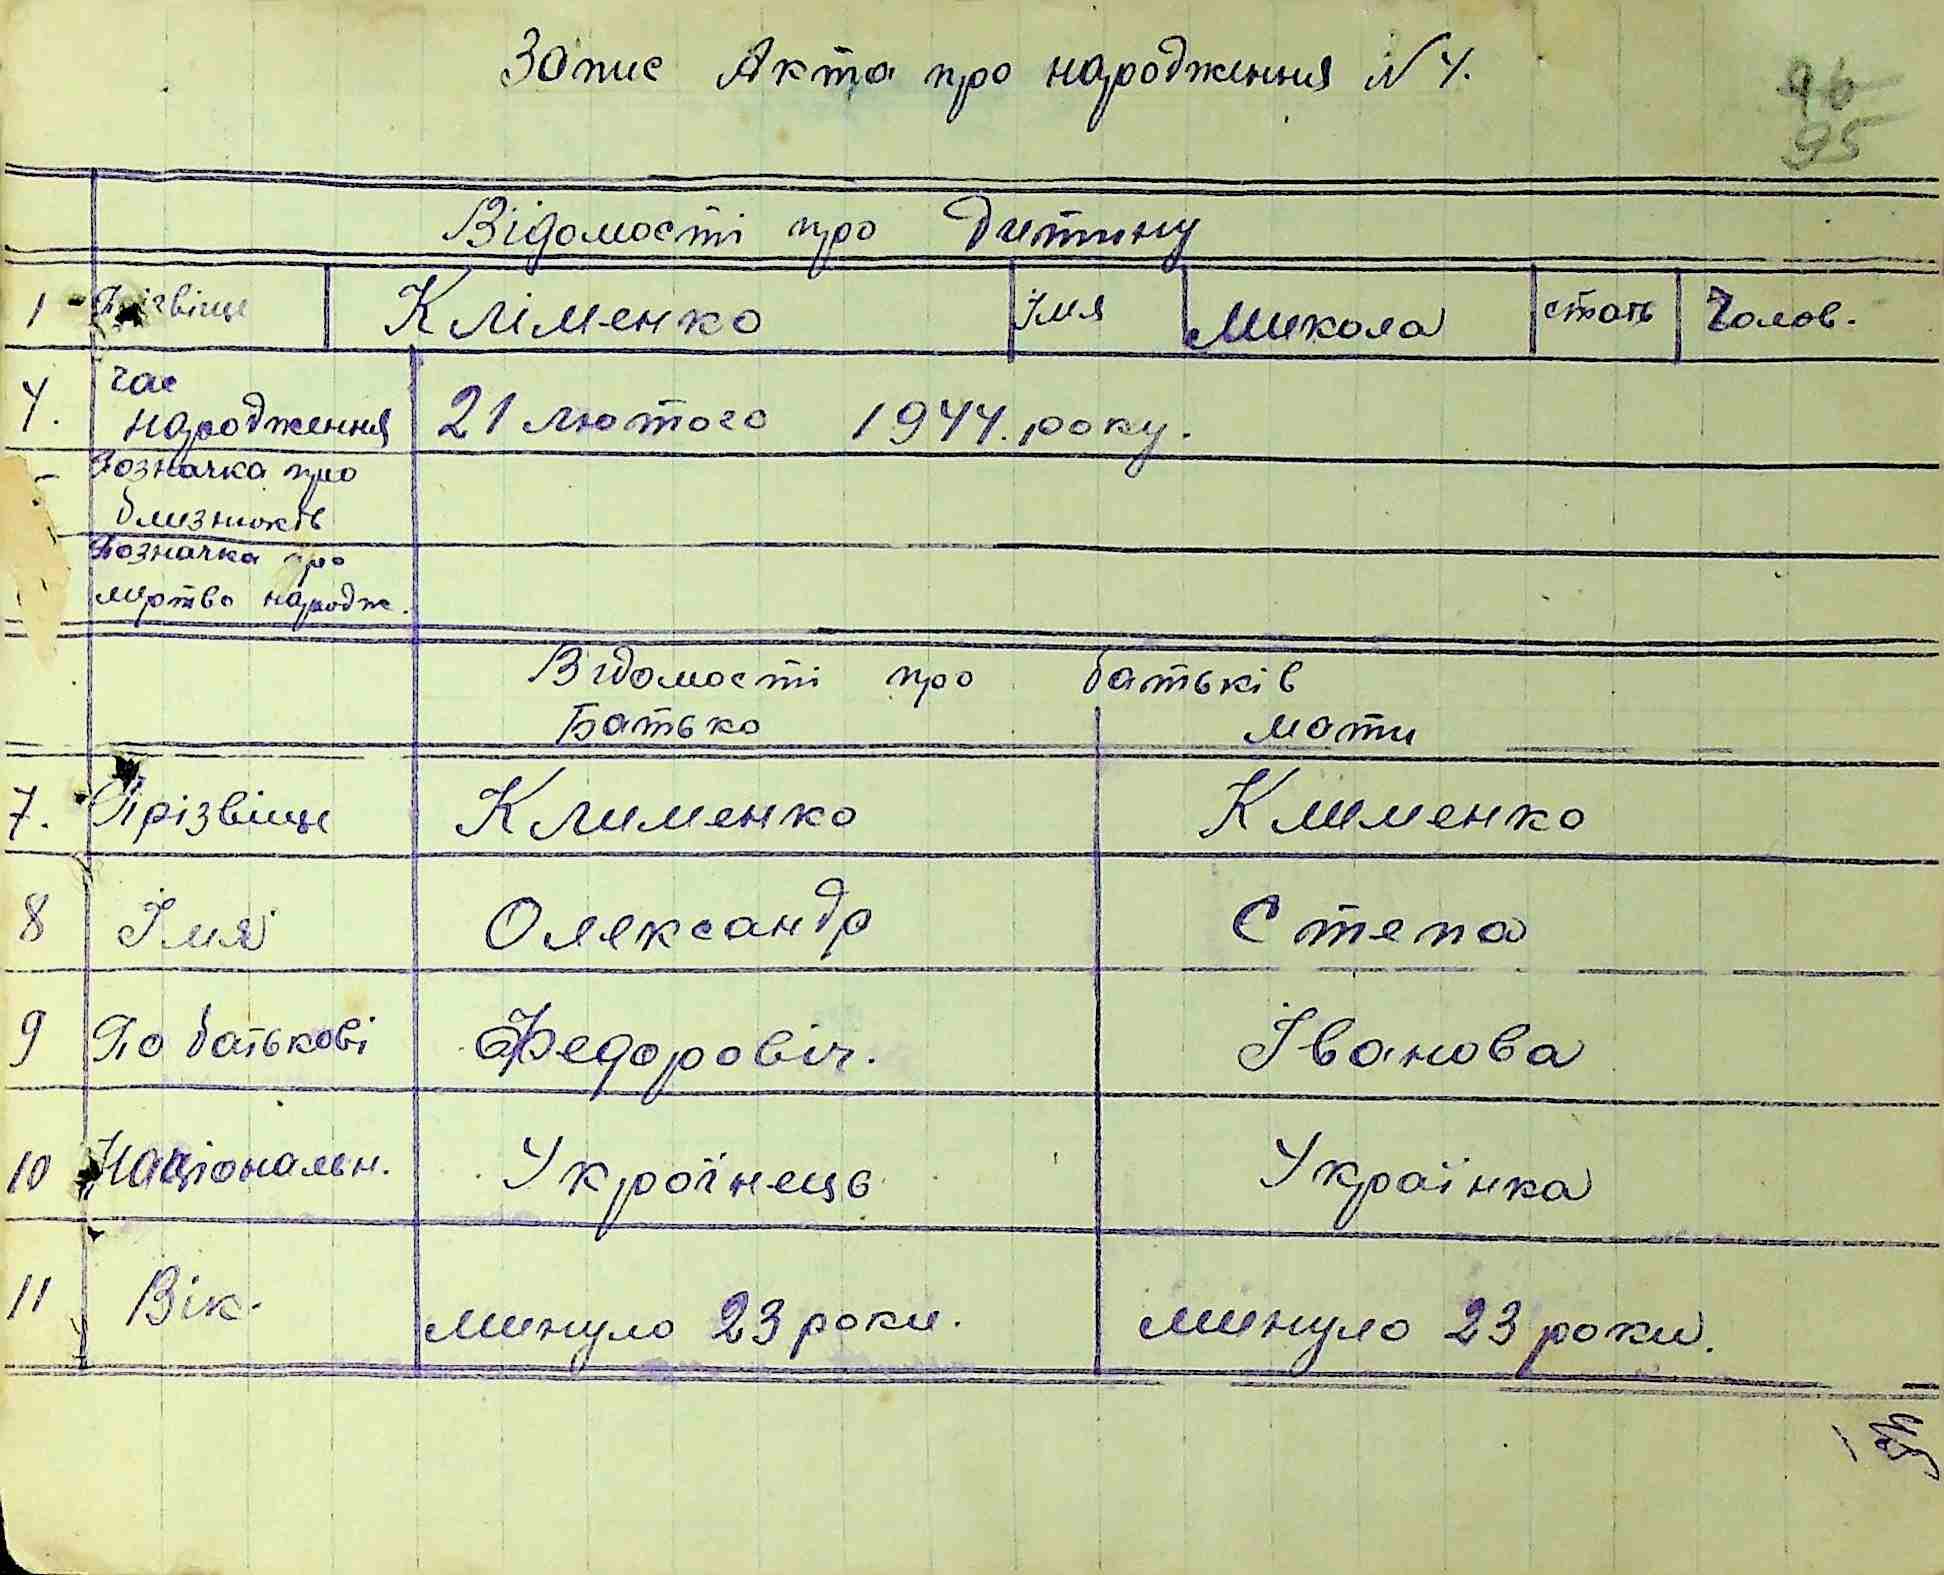 Запис Акта про народження N 4.
96
95
Відомості про дитину
1 Прізвіще Кліменко Імя Микола стать Чолов.
4. час народження 21 лютого 1944. року.
Позначка про
близнюків
Позначка про
мертво народж.
Відомості про батьків
Батько мати
7. Прізвіще Клименко Клименко
8 Імя Олександр Степа
9 По батькові Федоровіч. Іванова
10 Національн. Українець Українка
11 Вік. минуло 23 роки. минуло 23 роки.